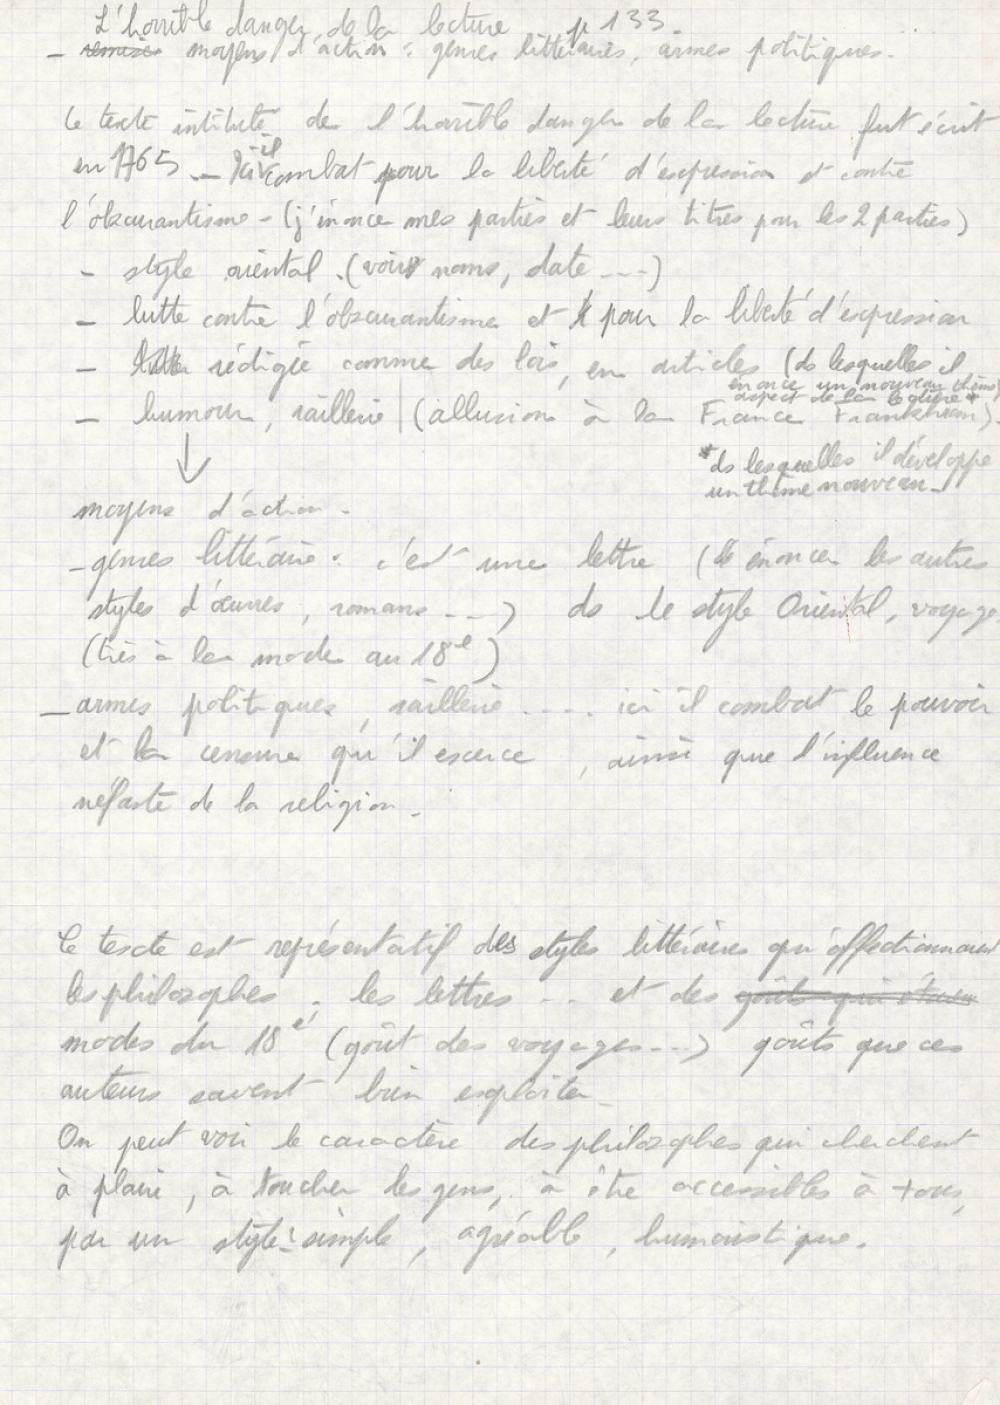 L'horrible danger de la lecture p 133.
- moyens d'action : genres littéraires, armes politiques.
Ce texte intitulé de l'horrible danger de la lecture fut écrit
en 1765 - il combat pour la liberté d'expression et contre
l'obscurantisme - (j'énonce mes parties et leurs titres pour les 2 parties)
- style oriental (voir noms, date ---)
- lutte contre l'obscurantisme et pour la liberté d'expression
- rédigée comme des lois, en articles (ds lesquelles il
énonce un nouveau thème
aspect de la *
- humour, raillerie (allusion à la France Frankhrom).
*ds lesquelles il développe
un thème nouveau -
moyens d'action -
- genres littéraire : c'est une lettre ( énoncer les autres
styles d'œuvres, romans ---) ds le style Oriental, voyage
(très à la mode au 18e)
- armes politiques, raillerie .... ici il combat le pouvoir
et la censure qu'il exerce, ainsi que l'influence
néfaste de la religion -
Ce texte est représentatif des styles littéraires qu'affectionnaient
les philosophes : les lettres -- et des goûts qui étaient
modes du 18e (goût des voyages ---) goûts que ces
auteurs savent bien exploiter -
On peut voir le caractère des philosophes qui cherchent
à plaire, à toucher les gens, à être accessibles à tous,
par un style simple, agréable, humoristique.